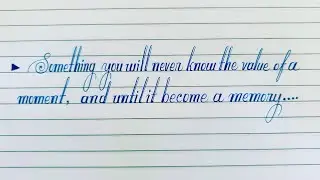 ▸ Something you will never know the value of a
moment, and until it become a memory....